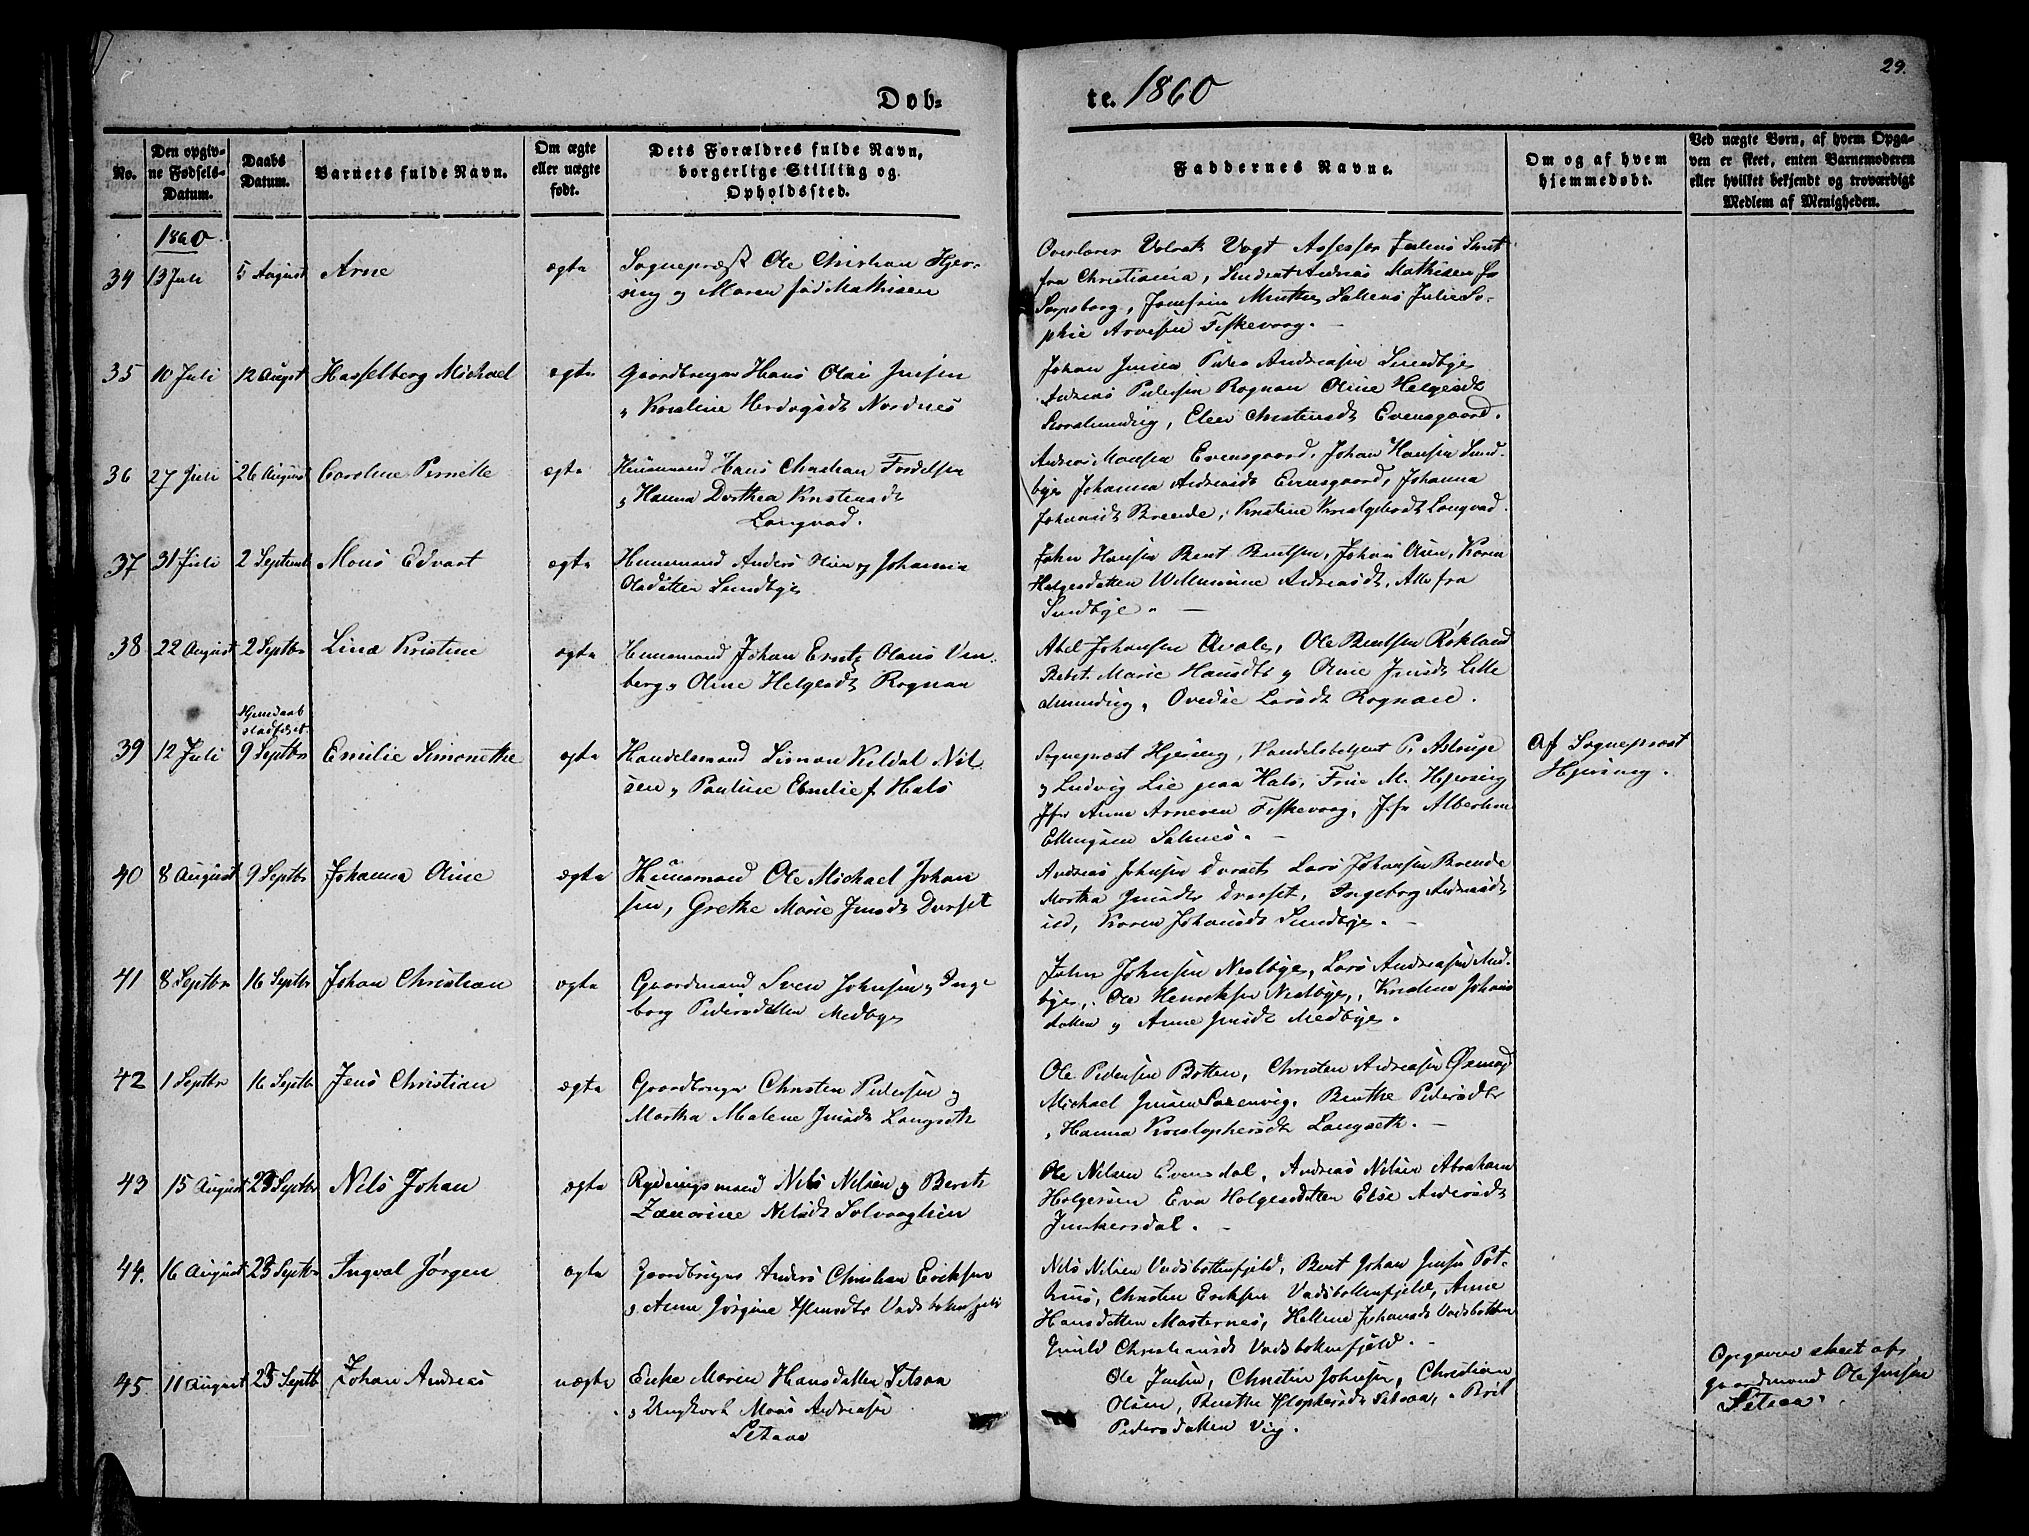 29.
Døb-
te. 1860
No.
Den opgiv-
ne Fødsels-
Datum.
Daabs
Datum.
Barnets fulde Navn.
Om ægte
eller uægte
født.
Dets Forældres fulde Navn,
borgerlige Stilling og
Opholdssted.
Faddernes Navne.
Om og af hvem
hjemmedøbt.
Ved uægte Børn, af hvem Opga-
ven er skeet, enten Barnemoderen
eller hvilket bekjendt og troværdigt
Medlem af Menigheden.
1860
34 13 Juli 5 August Arne ægte
Sognepræst Ole Christian Hjer-
sing og Maren fød Mathisen
Overlærer Volrath Vogt Assessor Julius
fra Christiania, Student Andreas Mathisen fra
Sarpsborg, Josefine Munthe Saltnes Julie So-
phie Arvesen Fiskevaag.
35 10 Juli 12 August Hasselberg Michael ægte
Gaardbruger Hans Olai Jensen
og Karoline Hertvigsdt Nordnes
Johan Jensen Peder Andreasen Sundbye
Andreas Pedersen Rognan Oline Helgesdt
Storalmindig, Elen Christensdt Evensgaard.
36 27 Juli 26 August Caroline Pernille ægte
Huusmand Hans Christian
og Hanna Dorthea Kristensdt
Langvad.
Andreas Monsen Evensgaard, Johan Hansen Sund-
bye Johanna Andreasdt Evensgaard, Johanna
Johansdt Brænde, Kristine Langvad.
37 31 Juli 2 Septemb Mons Edvart ægte
Huusmand Anders Olsen og Johanna
Olsdatter Sundbye
John Hansen Bent Bentsen, Johan Olsen, Karen
Helgesdatter Willumine Andreasdt, Alle fra
Sundbye.
38 22 August 2 Septbr Lina Kristine ægte
Huusmand Johan Ernts Olaus Ven-
berg og Oline Helgesdt Rognan
Abel Johansen Qvale, Ole Bentsen Røkland
Marie Hansdtr og Oline Jensdt Lille
almindig, Ovedie Larsdt Rognan.
Hjemdaab
stadfæst.
39 12 Juli 9 Septbr Emilie Simonethe ægte
Handelsmand Simon Kildal Nil-
sen og Pauline Emilie f Hals
Sognepræst Hjersing, Handelsbetjent P. Astrup
og Ludvig Lie paa Hals, Frue M. Hjersing
Jfr Anne Arnesen Fiskevaag, Jfr Albertine
Ellingsen Saltnes.
Af Sognepræst
Hjersing.
40 8 August 9 Septbr Johanna Oline ægte
Huusmand Ole Michael Johan
sen, Grethe Marie Jensdt Dverset
Andreas Johnsen Dverset Lars Johansen Brænde
Martha Jensdtr Dverset, Ingeborg Andreasdt
ibd, Karen Johansdt Sundbye.
41 8 Septbr 16 Septbr Johan Christian ægte
Gaardmand Sven Johnsen og Inge
borg Pedersdatter Medbye
John Johnsen Nedbye, Lars Andreasen Med-
bye, Ole Henriksen Nedbye, Kristina Johans
datter og Anne Jensdt Medbye.
42 1 Septbr 16 Septbr Jens Christian ægte
Gaardbruger Christen Pedersen og
Martha Malene Jensdt Langseth
Ole Pedersen Botten, Christen Andreasen
Michael Jensen Saxenvig, Benthe Pedersdtr
og Hanna Kristophersdt Langseth.
43 15 August 23 Septbr Nils Johan ægte
Rydningsmand Nils Nilsen og Bereth
Zanarine Nilsdt Solvaaglien
Ole Nilsen Evensdal, Andreas Nilsen Abraham
Holgersen Eva Holgersdatter Else Andersdt
Junkersdal.
44. 16 August 23 Septbr Ingval Jørgen ægte
Gaardbruger Anders Christian Eriksen
og Anne Jørgine Vadsbottenfjeld
Nils Nilsen Vadsbottenfjeld, Bent Johan Jensen Pot-
huus, Christen Eriksen Vadsbottenfjeld, Anne
Hansdatter Masternes, Hellene Johansdt Vadsbotten
Christiansdt Vadsbottenfjeld.
45 11 August 23 Septb Johan Andreas uægte
Enke Maren Hansdatter Setsaa
og Ungkarl Mons Andreasen
Setsaa
Ole Jensen, Christen Johnsen, Christian
Olsen, Benthe Setsaa, Brit
Pedersdatter Vig.
Opgaven skeet af
gaardmand Ole Jensen
Setsaa.